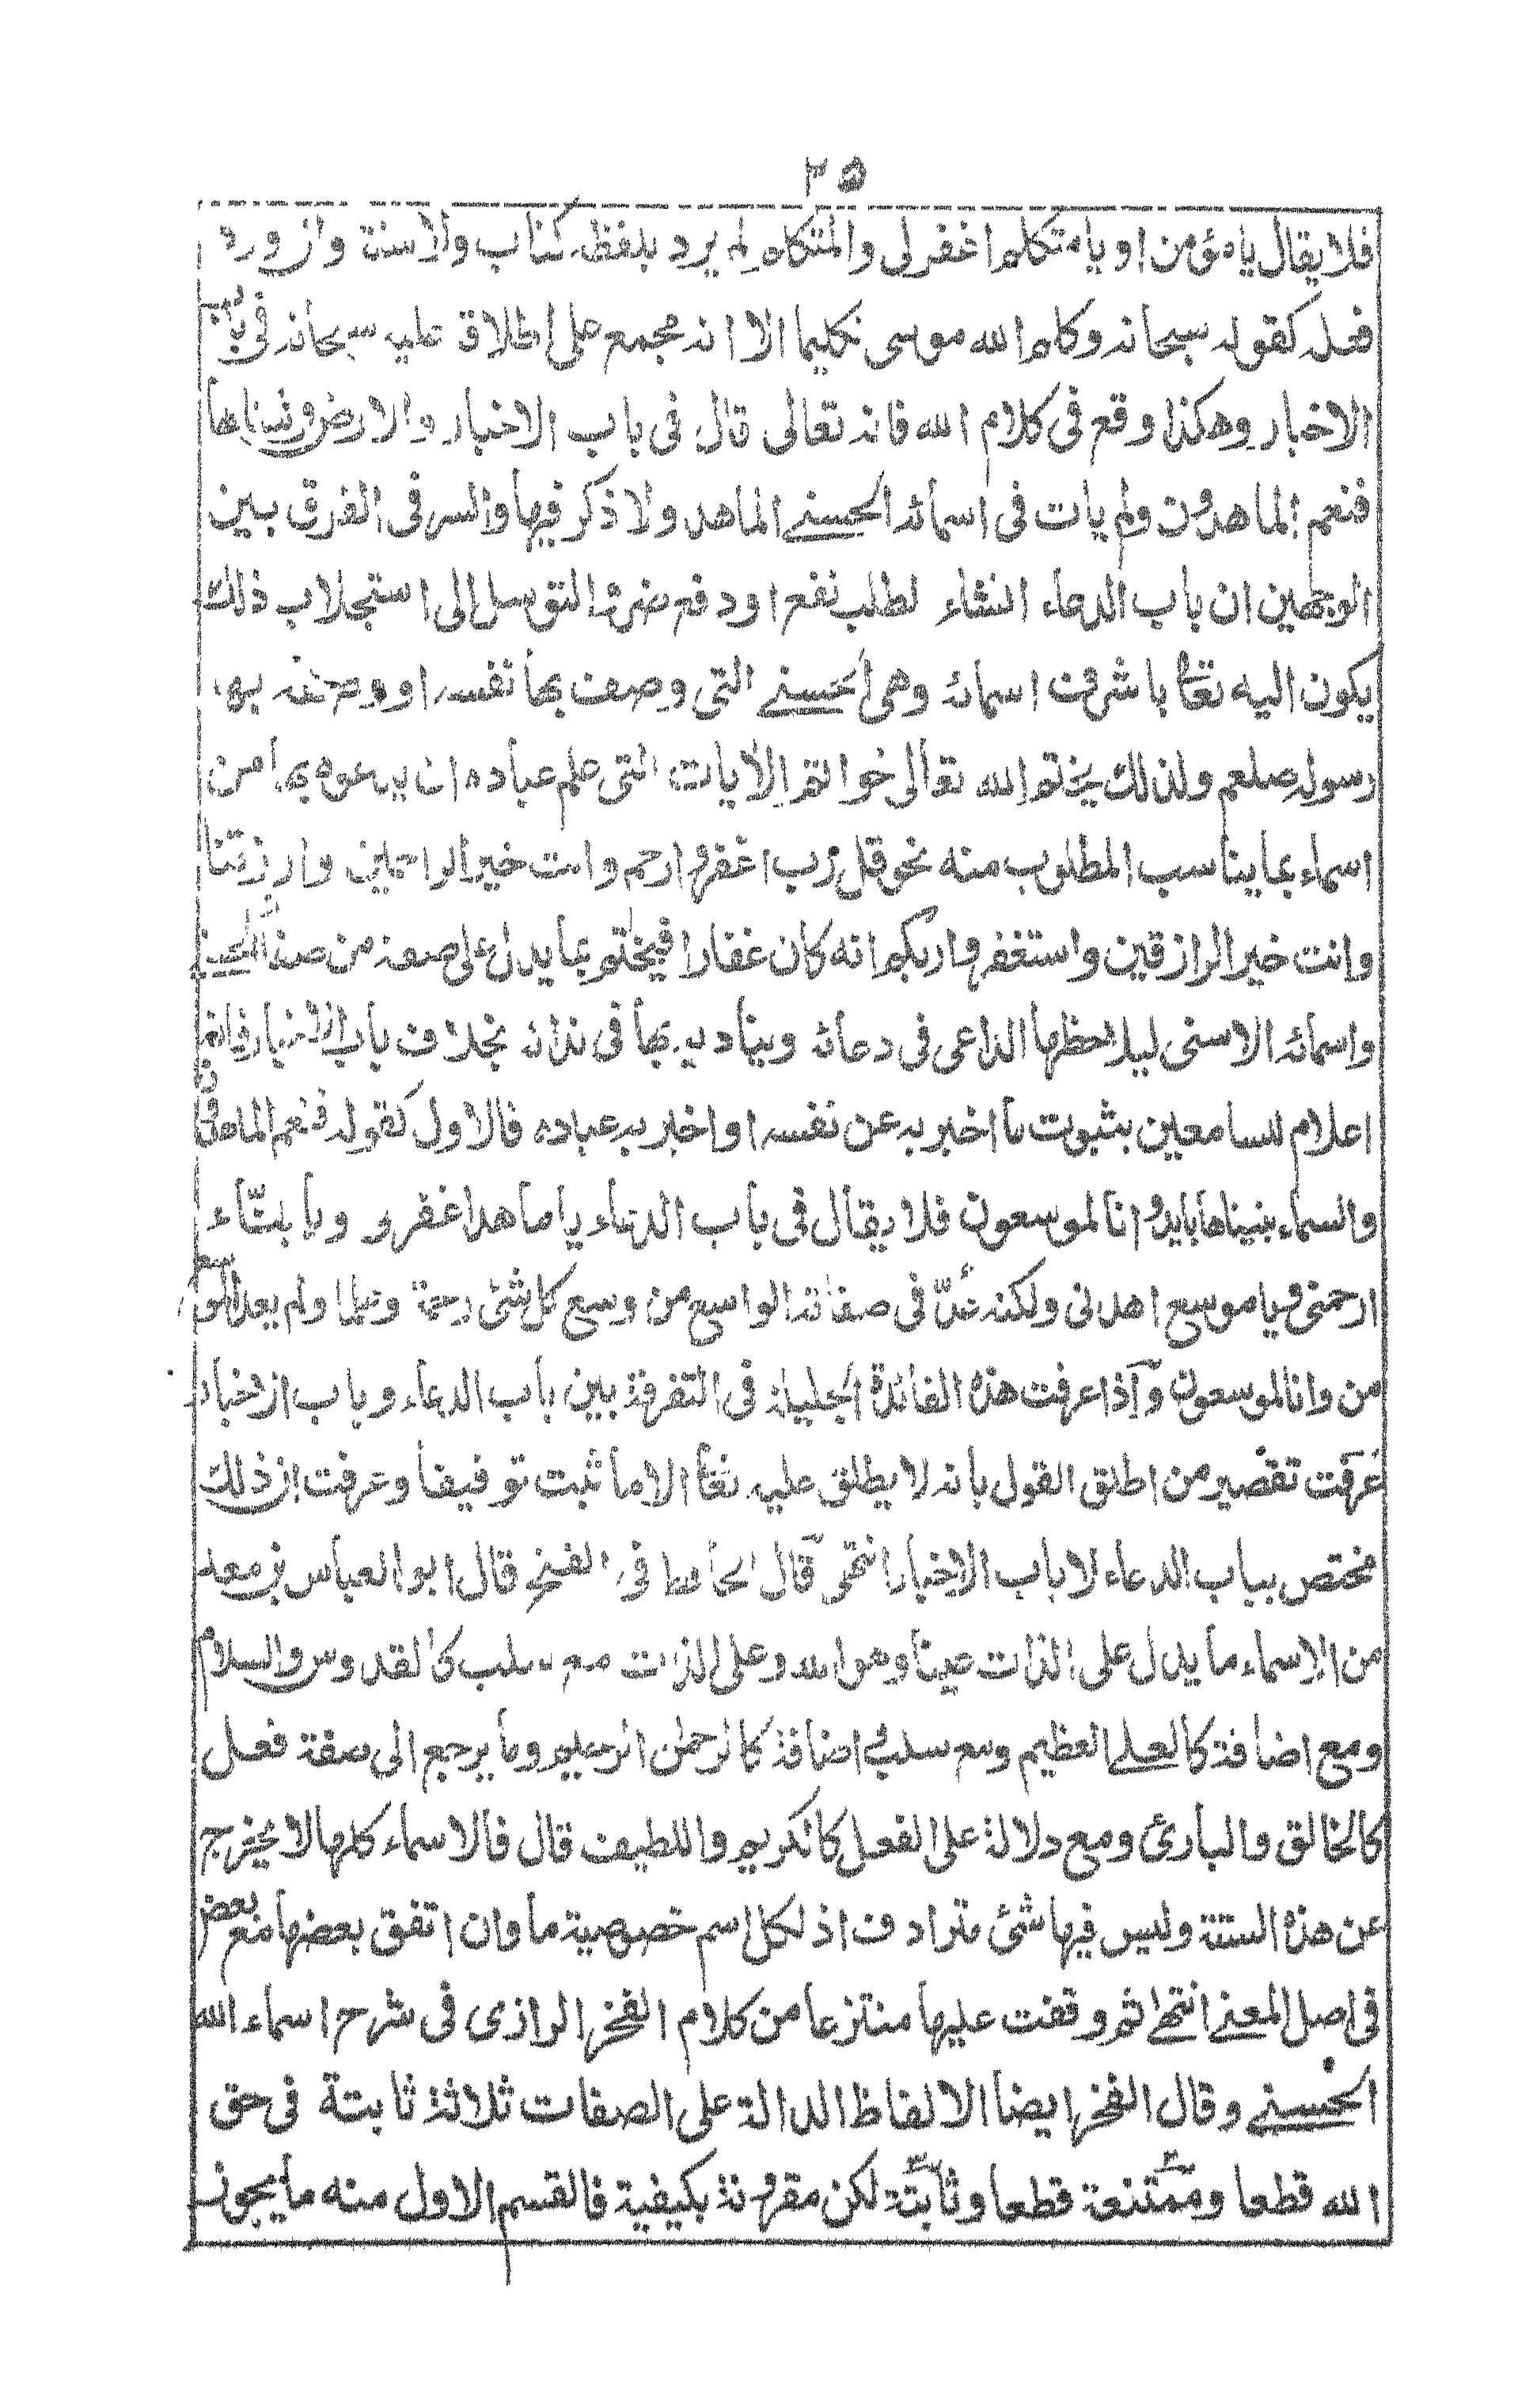 ٢٥
فلا يقال يا مؤمن او يا متكلم اغفر لى والمتكلم لم يرد بلفظه كتاب ولا سنة وان ورد
فعله كقوله سبحانه وكلم الله موسى تكليما الا انه مجمع على اطلاق عليه سبحانه فى باب
الاخبار وهكذا وقع فى كلام الله فانه تعالى قال فى باب الاخبار والارض فرشناها
فنعم الماهدون ولم يات فى اسمائه الحسنے الماهد ولا ذكر فيها والسر فى الفرق بين
الوجهين ان باب الدعاء انشاء لطلب نفع او دفع ضر والتوسل الى استجلاب ذلك
يكون اليه تعا باشرف اسمائه وهى الحسنے التى وصف بها نفسه او وصفه بها
رسوله صلعم ولذلك يختم الله تعالى خواتم الايات التى علم عباده ان يدعوه بها من
اسماء بما يناسب المطلوب منه نحو قل رب اغفر وارحم وانت خير الراحمين وارزقنا
وانت خير الرازقين واستغفروا ربكم انه كان غفارا فيختم بما يدل على صفة من صفا الحسنے
واسمائه الاسنى ليلاحظها الداعى فى دعائه ويناديه بها فى ندائه بخلاف باب الاخبار فانه
اعلام للسامعين بثبوت ما اخبر به عن نفسه او اخبر به عباده فالاول كقوله فنعم الماهدون
والسماء بنيناها بايد وانا لموسعون فلا يقال فى باب الدعاء يا ماهد اغفر لى ويا بنّاء
ارحمنى ويا موسع اهدنى ولكنه عُدّ فى صفاته الواسع من وسع كل شئ رحمة وعلما ولم يعد الموسع
من وانا لموسعون وإذا عرفت هذه الفائدة الجليلة فى التفرقة بين باب الدعاء وباب الاخبار
عرفت تقصير من اطلق القول بانه لا يطلق عليه تعا الا ما ثبت توفيقا وعرفت ان ذلك
مختص بباب الدعاء لا باب الاخبار انتهى قال الحافظ فى الفتح قال ابو العباس بن معد
من الاسماء ما يدل على الذات عينا وهو الله وعلى الذات مع سلب كالقدوس والسلام
ومع اضافة كالعلے العظيم ومع سلب واضافة كالرحمن الرحيم وما يرجع الى صفة فعل
كالخالق والبارئ ومع دلالة على الفعل كالكريم واللطيف قال فالاسماء كلها لا يخرج
عن هذه الستة وليس فيها شئ مترادف اذ لكل اسم خصوصية ما وان اتفق بعضها مع بعض
فى اصل المعنے انتهے ثم وقفت عليها منتزعا من كلام الفخر الرازى فى شرح اسماء الله
الحسنے وقال الفخر ايضا الالفاظ الدالة على الصفات ثلاثة ثابتة فى حق
الله قطعا وممتنعة قطعا وثابتة لكن مقرونة بكيفية فالقسم الاول منه ما يجوز